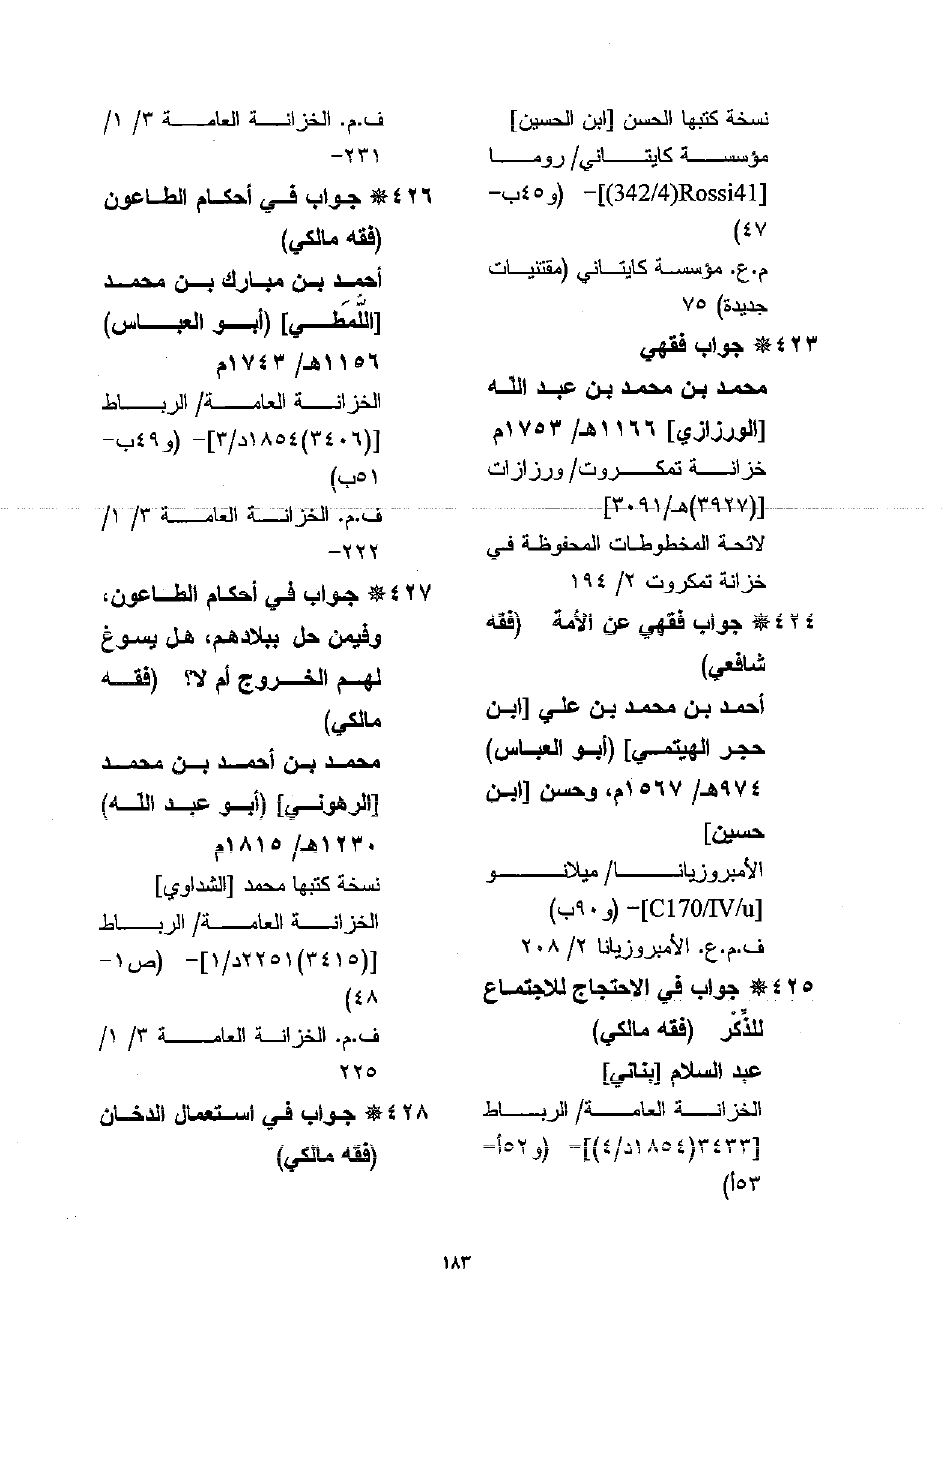 نسخة كتبها الحسن [ابن الحسين]
مؤسسة كايتاني/ روما
[Rossi41(342/4)]- (و٤٥ب-
٤٧)
م.ع. مؤسسة كايتاني (مقتنيات
جديدة) ٧٥
٤٢٣* جواب فقهي
محمد بن محمد بن عبد الله
[الورزازي] ١١٦٦هـ/ ١٧٥٣م
خزانة تمكروت/ ورزازات
[(٣٩٢٧)هـ/٣٠٩١]
لائحة المخطوطات المحفوظة في
خزانة تمكروت ٢/ ١٩٤
٤٢٤* جواب فقهي عن الأمة (فقه
شافعي)
أحمد بن محمد بن علي [ابن
حجر الهيتمي] (أبو العباس)
٩٧٤هـ/ ١٥٦٧م، وحسن [ابن
حسين]
الأمبروزيانا/ ميلانو
[C170/IV/u]- (و٩٠ب)
ف.م.ع. الأمبروزيانا ٢/ ٢٠٨
٤٢٥* جواب في الاحتجاج للاجتماع
للذِّكْر (فقه مالكي)
عبد السلام [بناني]
الخزانة العامة/ الرباط
[٣٤٣٣(١٨٥٤د/٤)]- (و٥٢أ-
٥٣أ)
ف.م. الخزانة العامة ٣/ ١/
٢٣١-
٤٢٦* جواب في أحكام الطاعون
(فقه مالكي)
أحمد بن مبارك بن محمد
[اللَّمَطي] (أبو العباس)
١١٥٦هـ/ ١٧٤٣م
الخزانة العامة/ الرباط
[(٣٤٠٦)١٨٥٤د/٣]- (و٤٩ب-
٥١ب)
ف.م. الخزانة العامة ٣/ ١/
٢٢٢-
٤٢٧* جواب في أحكام الطاعون،
وفيمن حل ببلادهم، هل يسوغ
لهم الخروج أم لا؟ (فقه
مالكي)
محمد بن أحمد بن محمد
[الرهوني] (أبو عبد الله)
١٢٣٠هـ/ ١٨١٥م
نسخة كتبها محمد [الشداوي]
الخزانة العامة/ الرباط
[(٣٤١٥)٢٢٥١د/١]- (ص١-
٤٨)
ف.م. الخزانة العامة ٣/ ١/
٢٢٥
٤٢٨* جواب في استعمال الدخان
(فقه مالكي)
١٨٣